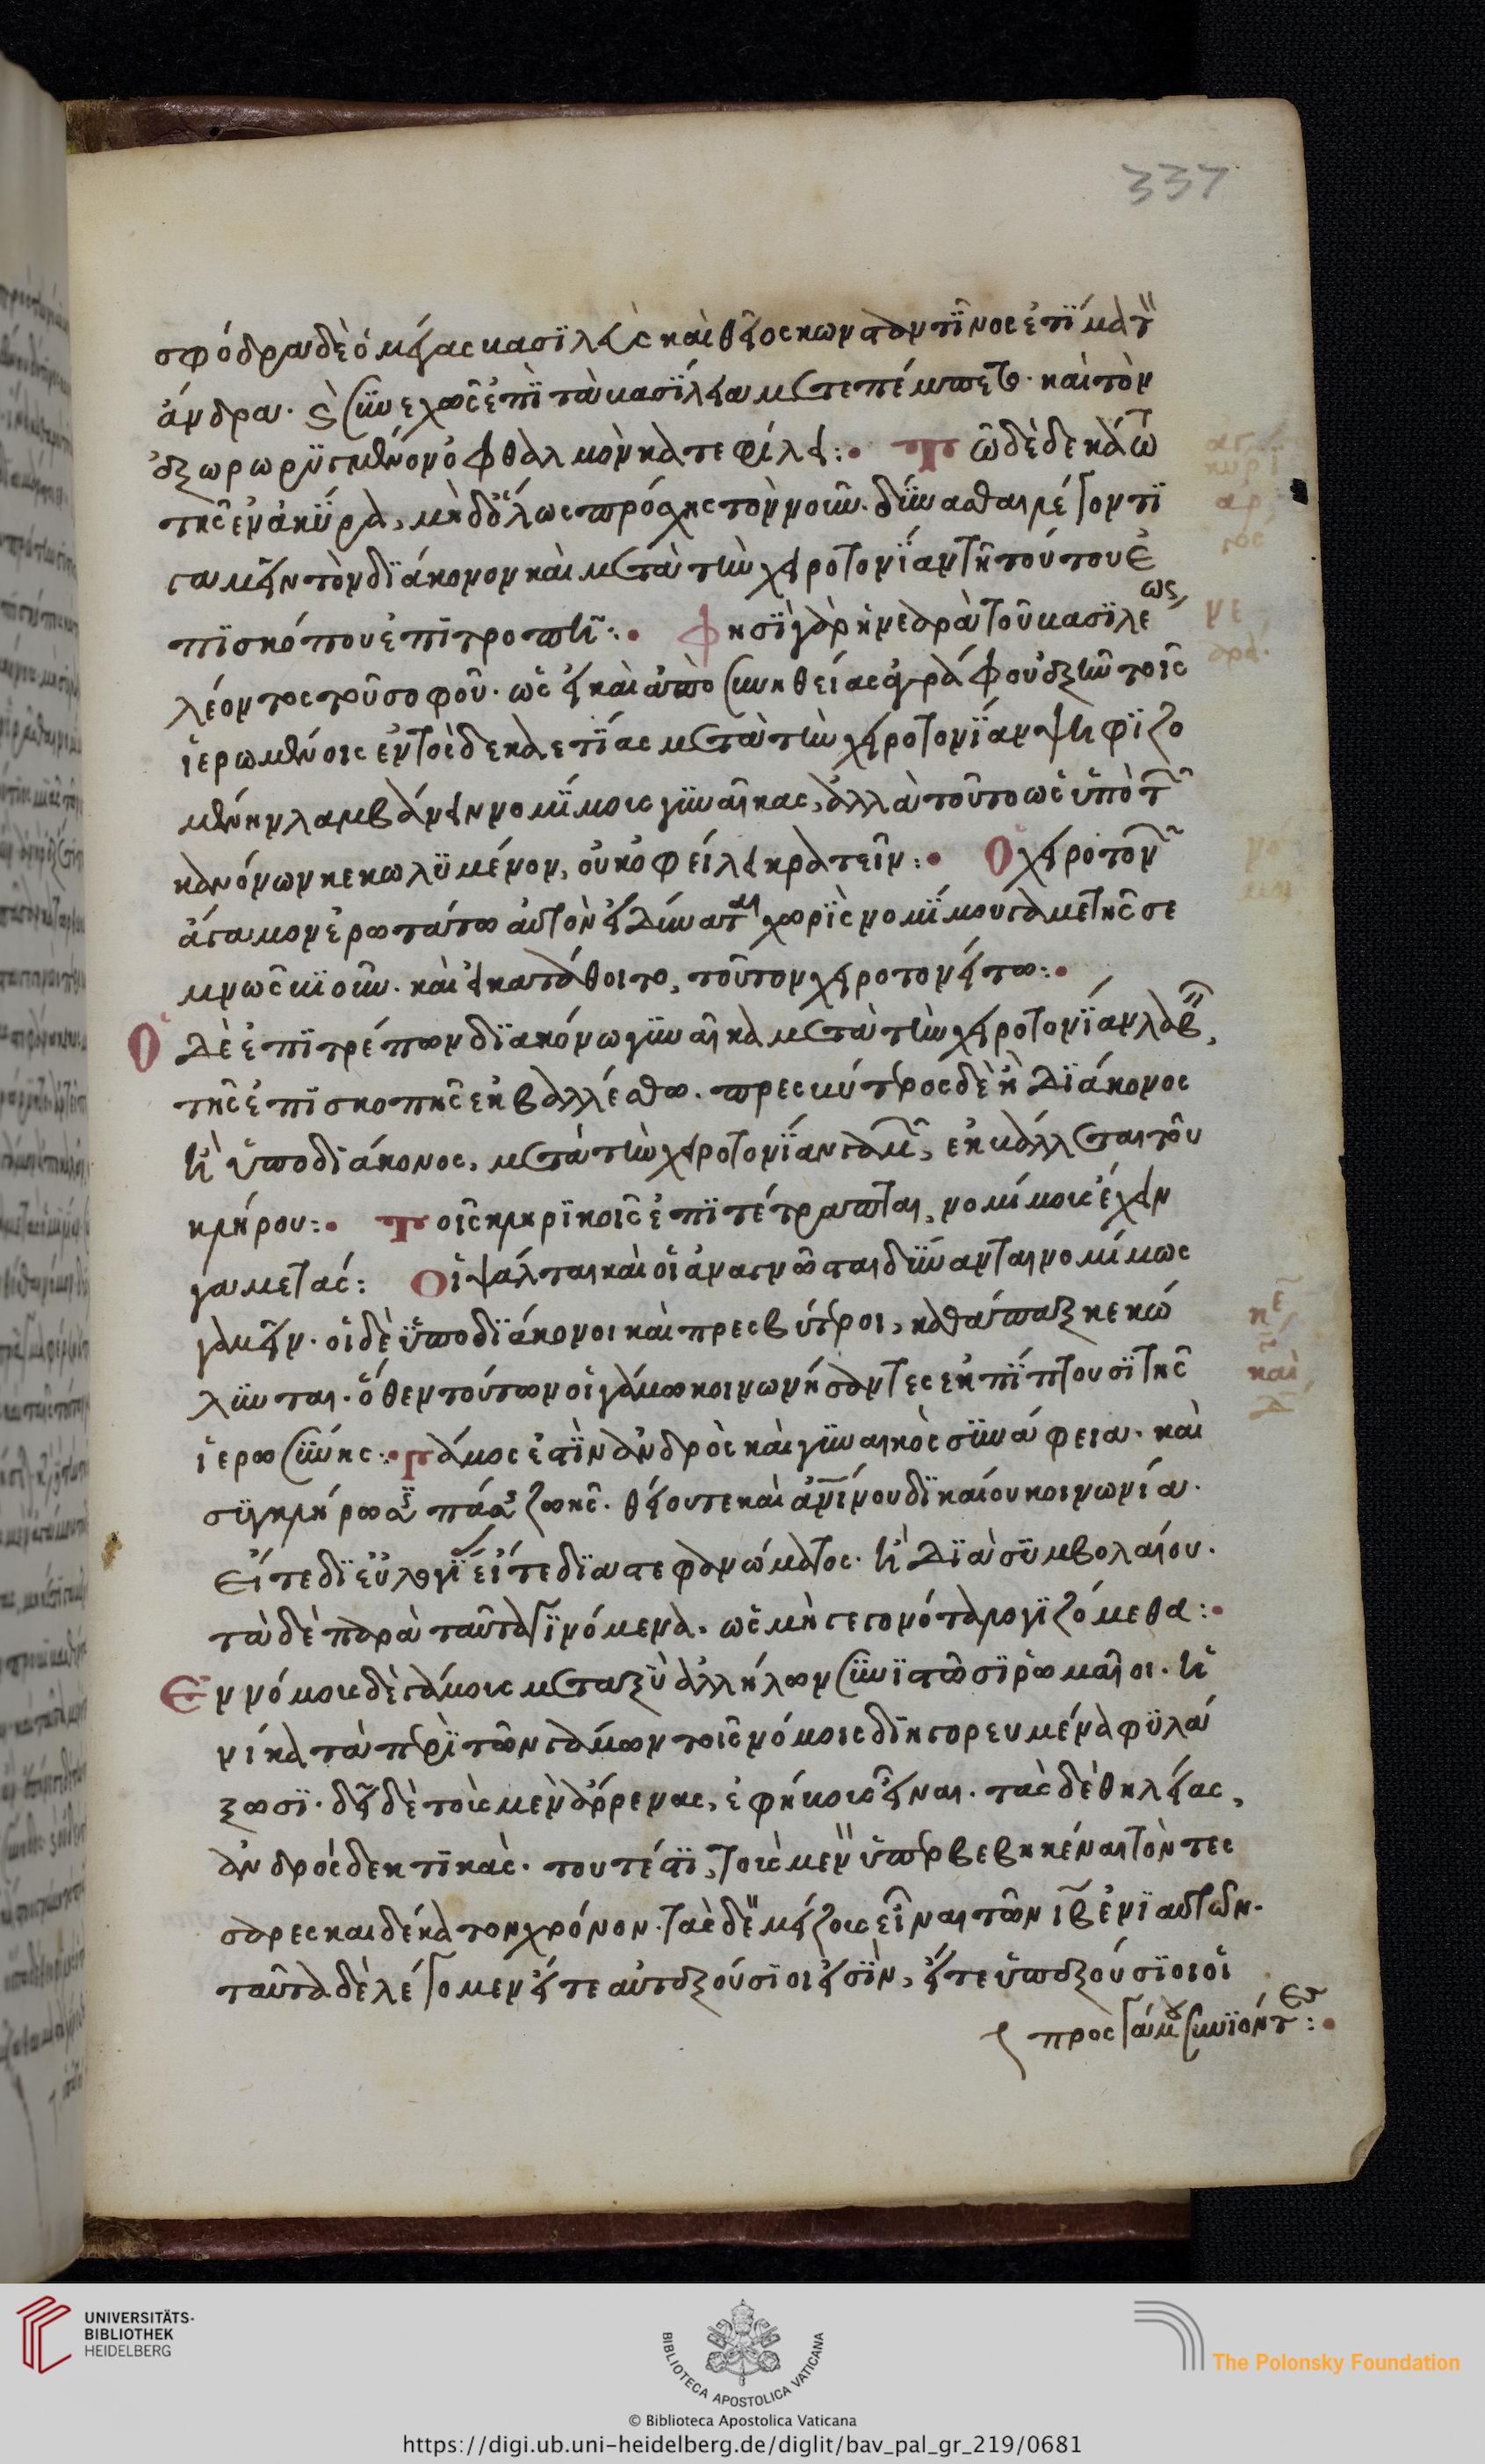 337
σφόδρα δὲ ὁ μέγας βασιλεὺς καὶ θεῖος κωνσταντῖνος ἐτίμα τ
ἄνδρα. καὶ συνεχῶς ἐπὶ τὰ βασίλεια μετεπέμπετο. καὶ τὸν
ἐξωρωρυγμένον ὀφθαλμὸν κατεφίλει:
τῶ δὲ δεκάτω
τῆς ἐν ἀγκύρα, μὴ δόλως πρόσχης τὸν νοῦν. δύνασθαι λέγοντι
γαμεῖν τὸν διάκονον καὶ μετὰ τὴν χειροτονίαν τῆ τούτου ἐ
πισκόπου ἐπιτροπῆ:
φησὶ γὰρ ἡ νεαρὰ τοῦ βασιλέως
λέοντος τοῦ σοφοῦ. ὡς εἰ καὶ ἀπὸ συνηθείας ἀγράφου ἐξῆν τοῖς
ἱερωμένοις ἐντὸς δεκαετίας μετὰ τὴν χειροτονίαν ψηφιζο
μένην λαμβάνειν νομίμοις γυναῖκας, ἀλλὰ τοῦτο ὡς ὑπὸ τ
κανόνων κεκωλυμένον, οὐκ ὀφείλει κρατεῖν:
ὁ χειροτον
ἄγαμον ἐρωτάτω αὐτὸν εἰ δύναται χωρὶς νομίμου γαμετῆς σε
μνῶς βιοῦν. καὶ εἰ κατάθοιτο, τοῦτον χειροτονείτω:
ὁ δὲ ἐπιτρέπων διακόνω γυναῖκα μετὰ τὴν χειροτονίαν λαβ,
τῆς ἐπισκοπῆς ἐκβαλλέσθω. πρεσβύτερος δὲ ἢ διάκονος
ἢ ὑποδιάκονος, μετὰ τὴν χειροτονίαν γαμ, ἐκβάλλεται τοῦ
κλήρου:
τοῖς κληρικοῖς ἐπιτέτραπται, νομίμοις ἔχειν
γαμετάς:
οἱ ψάλται καὶ οἱ ἀναγνῶσται δύνανται νομίμως
γαμεῖν. οἱ δὲ ὑποδιάκονοι καὶ πρεσβύτεροι, καθάπαξ κεκώ
λυνται. ὅθεν τούτων οἱ γάμω κοινωνήσαντες ἐκπίπτουσι τῆς
ἱερωσύνης:
γάμος ἐστὶν ἀνδρὸς καὶ γυναικὸς συνάφεια. καὶ
συγκλήρωσις πάσης ζωῆς. θείου τε καὶ ἀνίνου δικαίου κοινωνία.
εἴτε δι εὐλογί εἴτε διὰ στεφανώματος. ἢ διὰ συμβολαίου.
τὰ δὲ παρὰ ταῦτα γινόμενα. ὡς μὴ γεγονότα λογιζόμεθα:
ἐννόμοις δὲ γάμοις μεταξὺ ἀλλήλων συνιστῶσι ῥωμαῖοι. ἡ
νίκα τὰ περὶ τῶν γάμων τοῖς νόμοις διηγορευμένα φυλά
ξωσι. δεῖ δὲ τοὺς μὲν ἄρρενας, ἐφήβους εἶναι. τὰς δὲ θηλείας,
ἀνδρὸς δεκτικάς. τουτέστι, τοὺς μὲν ὑπερβεβηκέναι τὸν τεσ
σαρεσκαιδέκατον χρόνον. τὰς δὲ μείζους εἶναι τῶν ιβ ἐνιαυτῶν.
ταῦτα δὲ λέγομεν εἴτε αὐτεξούσιοι εἰσὶν, εἴτε ὑπεξούσιοι οἱ
πρὸς γάμου συνιόντες:
UNIVERSITÄTS-
BIBLIOTHEK
HEIDELBERG
BIBLIOTECA APOSTOLICA VATICANA
The Polonsky Foundation
© Biblioteca Apostolica Vaticana
https://digi.ub.uni-heidelberg.de/diglit/bav_pal_gr_219/0681